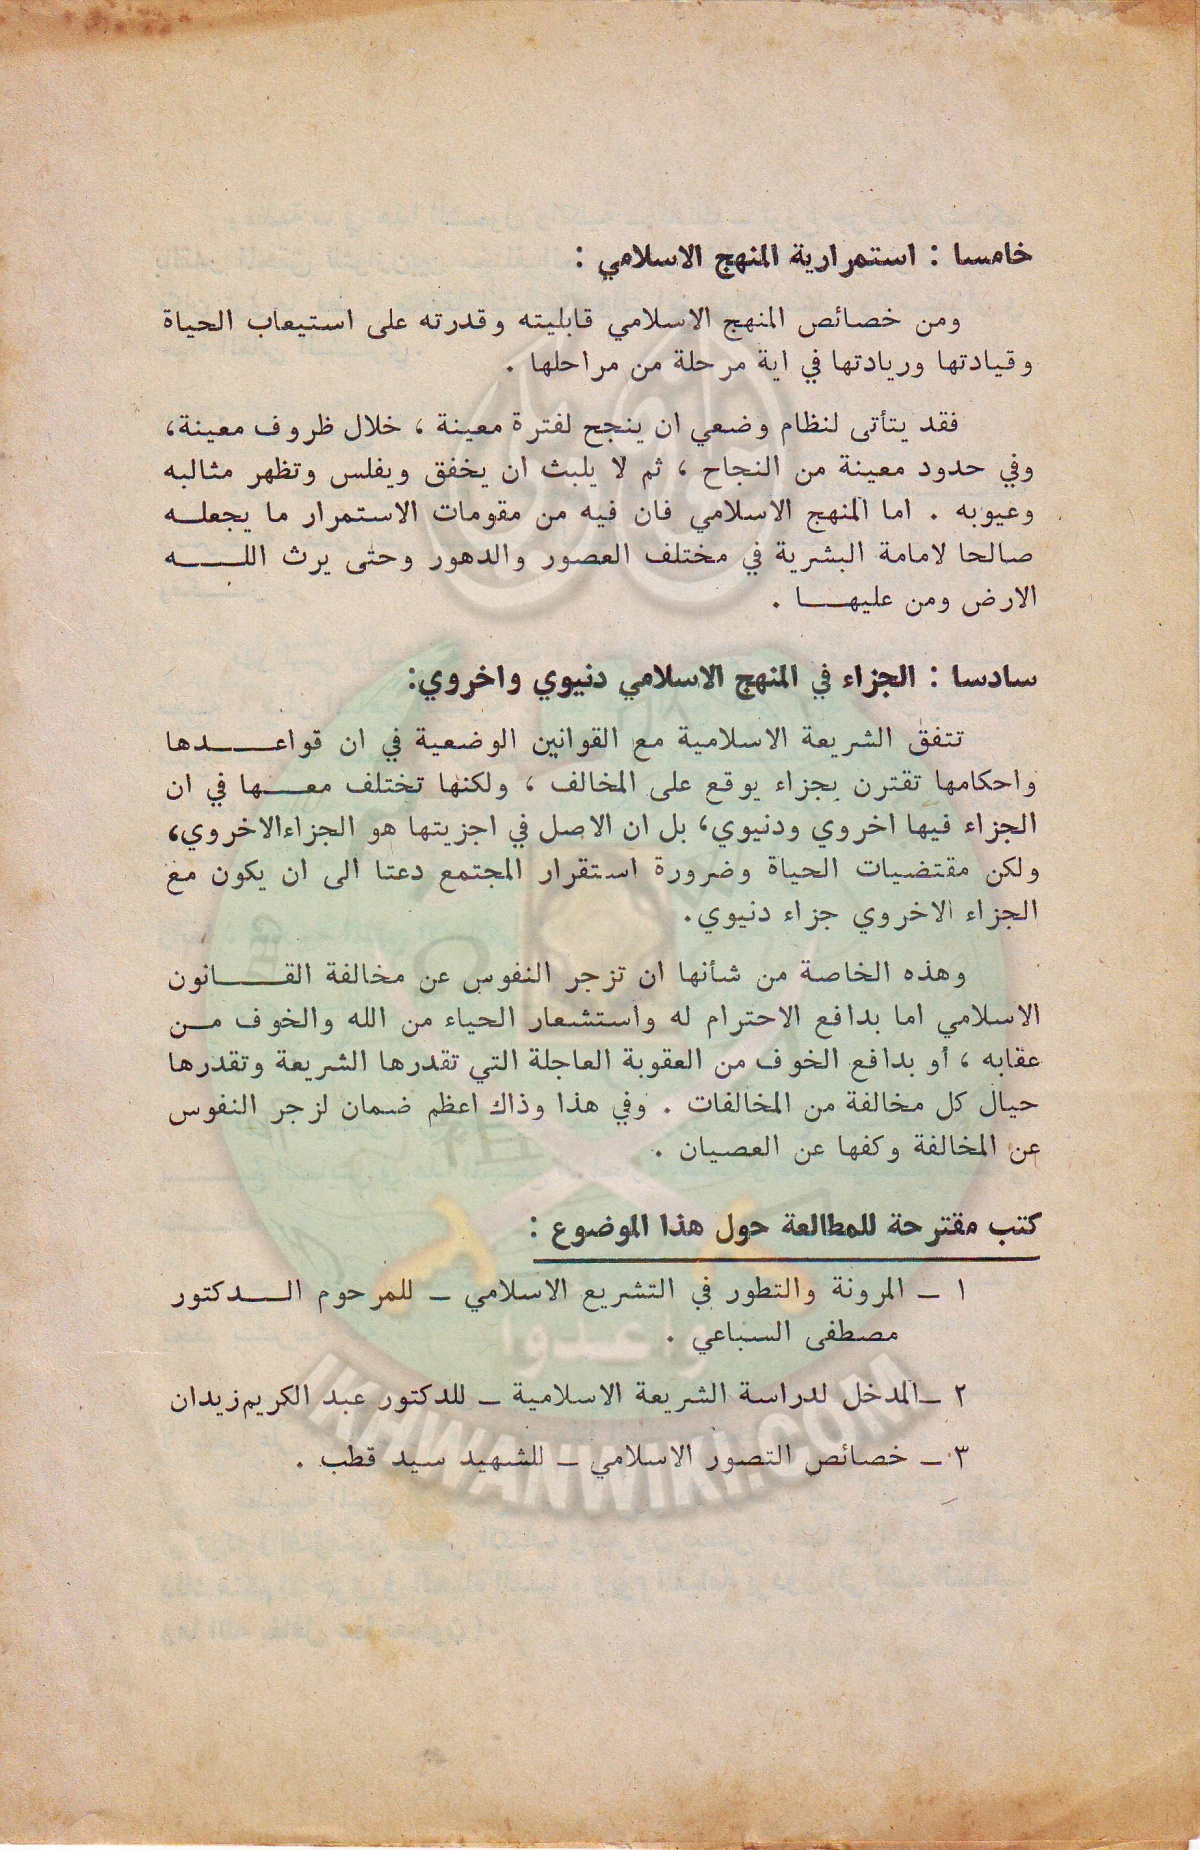 خامسا : استمرارية المنهج الاسلامي :
ومن خصائص المنهج الاسلامي قابليته وقدرته على استيعاب الحياة
وقيادتها وريادتها في اية مرحلة من مراحلها .
فقد يتأتى لنظام وضعي ان ينجح لفترة معينة ، خلال ظروف معينة،
وفي حدود معينة من النجاح ، ثم لا يلبث ان يخفق ويفلس وتظهر مثالبه
وعيوبه . اما المنهج الاسلامي فان فيه من مقومات الاستمرار ما يجعلـه
صالحا لامامة البشرية في مختلف العصور والدهور وحتى يرث اللـــه
الارض ومن عليهـــا .
سادسا : الجزاء في المنهج الاسلامي دنيوي واخروي:
تتفق الشريعة الاسلامية مع القوانين الوضعية في ان قواعـــدها
واحكامها تقترن بجزاء يوقع على المخالف ، ولكنها تختلف معــها في ان
الجزاء فيها اخروي ودنيوي، بل ان الاصل في اجزيتها هو الجزاءالاخروي،
ولكن مقتضيات الحياة وضرورة استقرار المجتمع دعتا الى ان يكون مع
الجزاء الاخروي جزاء دنيوي.
وهذه الخاصة من شأنها ان تزجر النفوس عن مخالفة القـــانون
الاسلامي اما بدافع الاحترام له واستشعار الحياء من الله والخوف مـن
عقابه ، أو بدافع الخوف من العقوبة العاجلة التي تقدرها الشريعة وتقدرها
حيال كل مخالفة من المخالفات . وفي هذا وذاك اعظم ضمان لزجر النفوس
عن المخالفة وكفها عن العصيان .
كتب مقترحة للمطالعة حول هذا الموضوع :
١ ـ المرونة والتطور في التشريع الاسلامي ـ للمرحوم الـــدكتور
مصطفى السباعي .
٢ ـالمدخل لدراسة الشريعة الاسلامية ـ للدكتور عبد الكريم‌زيدان
٣ ـ خصائص التصور الاسلامي ـ للشهيد سيد قطب .
وأعدوا
IKHWANWIKI.COM